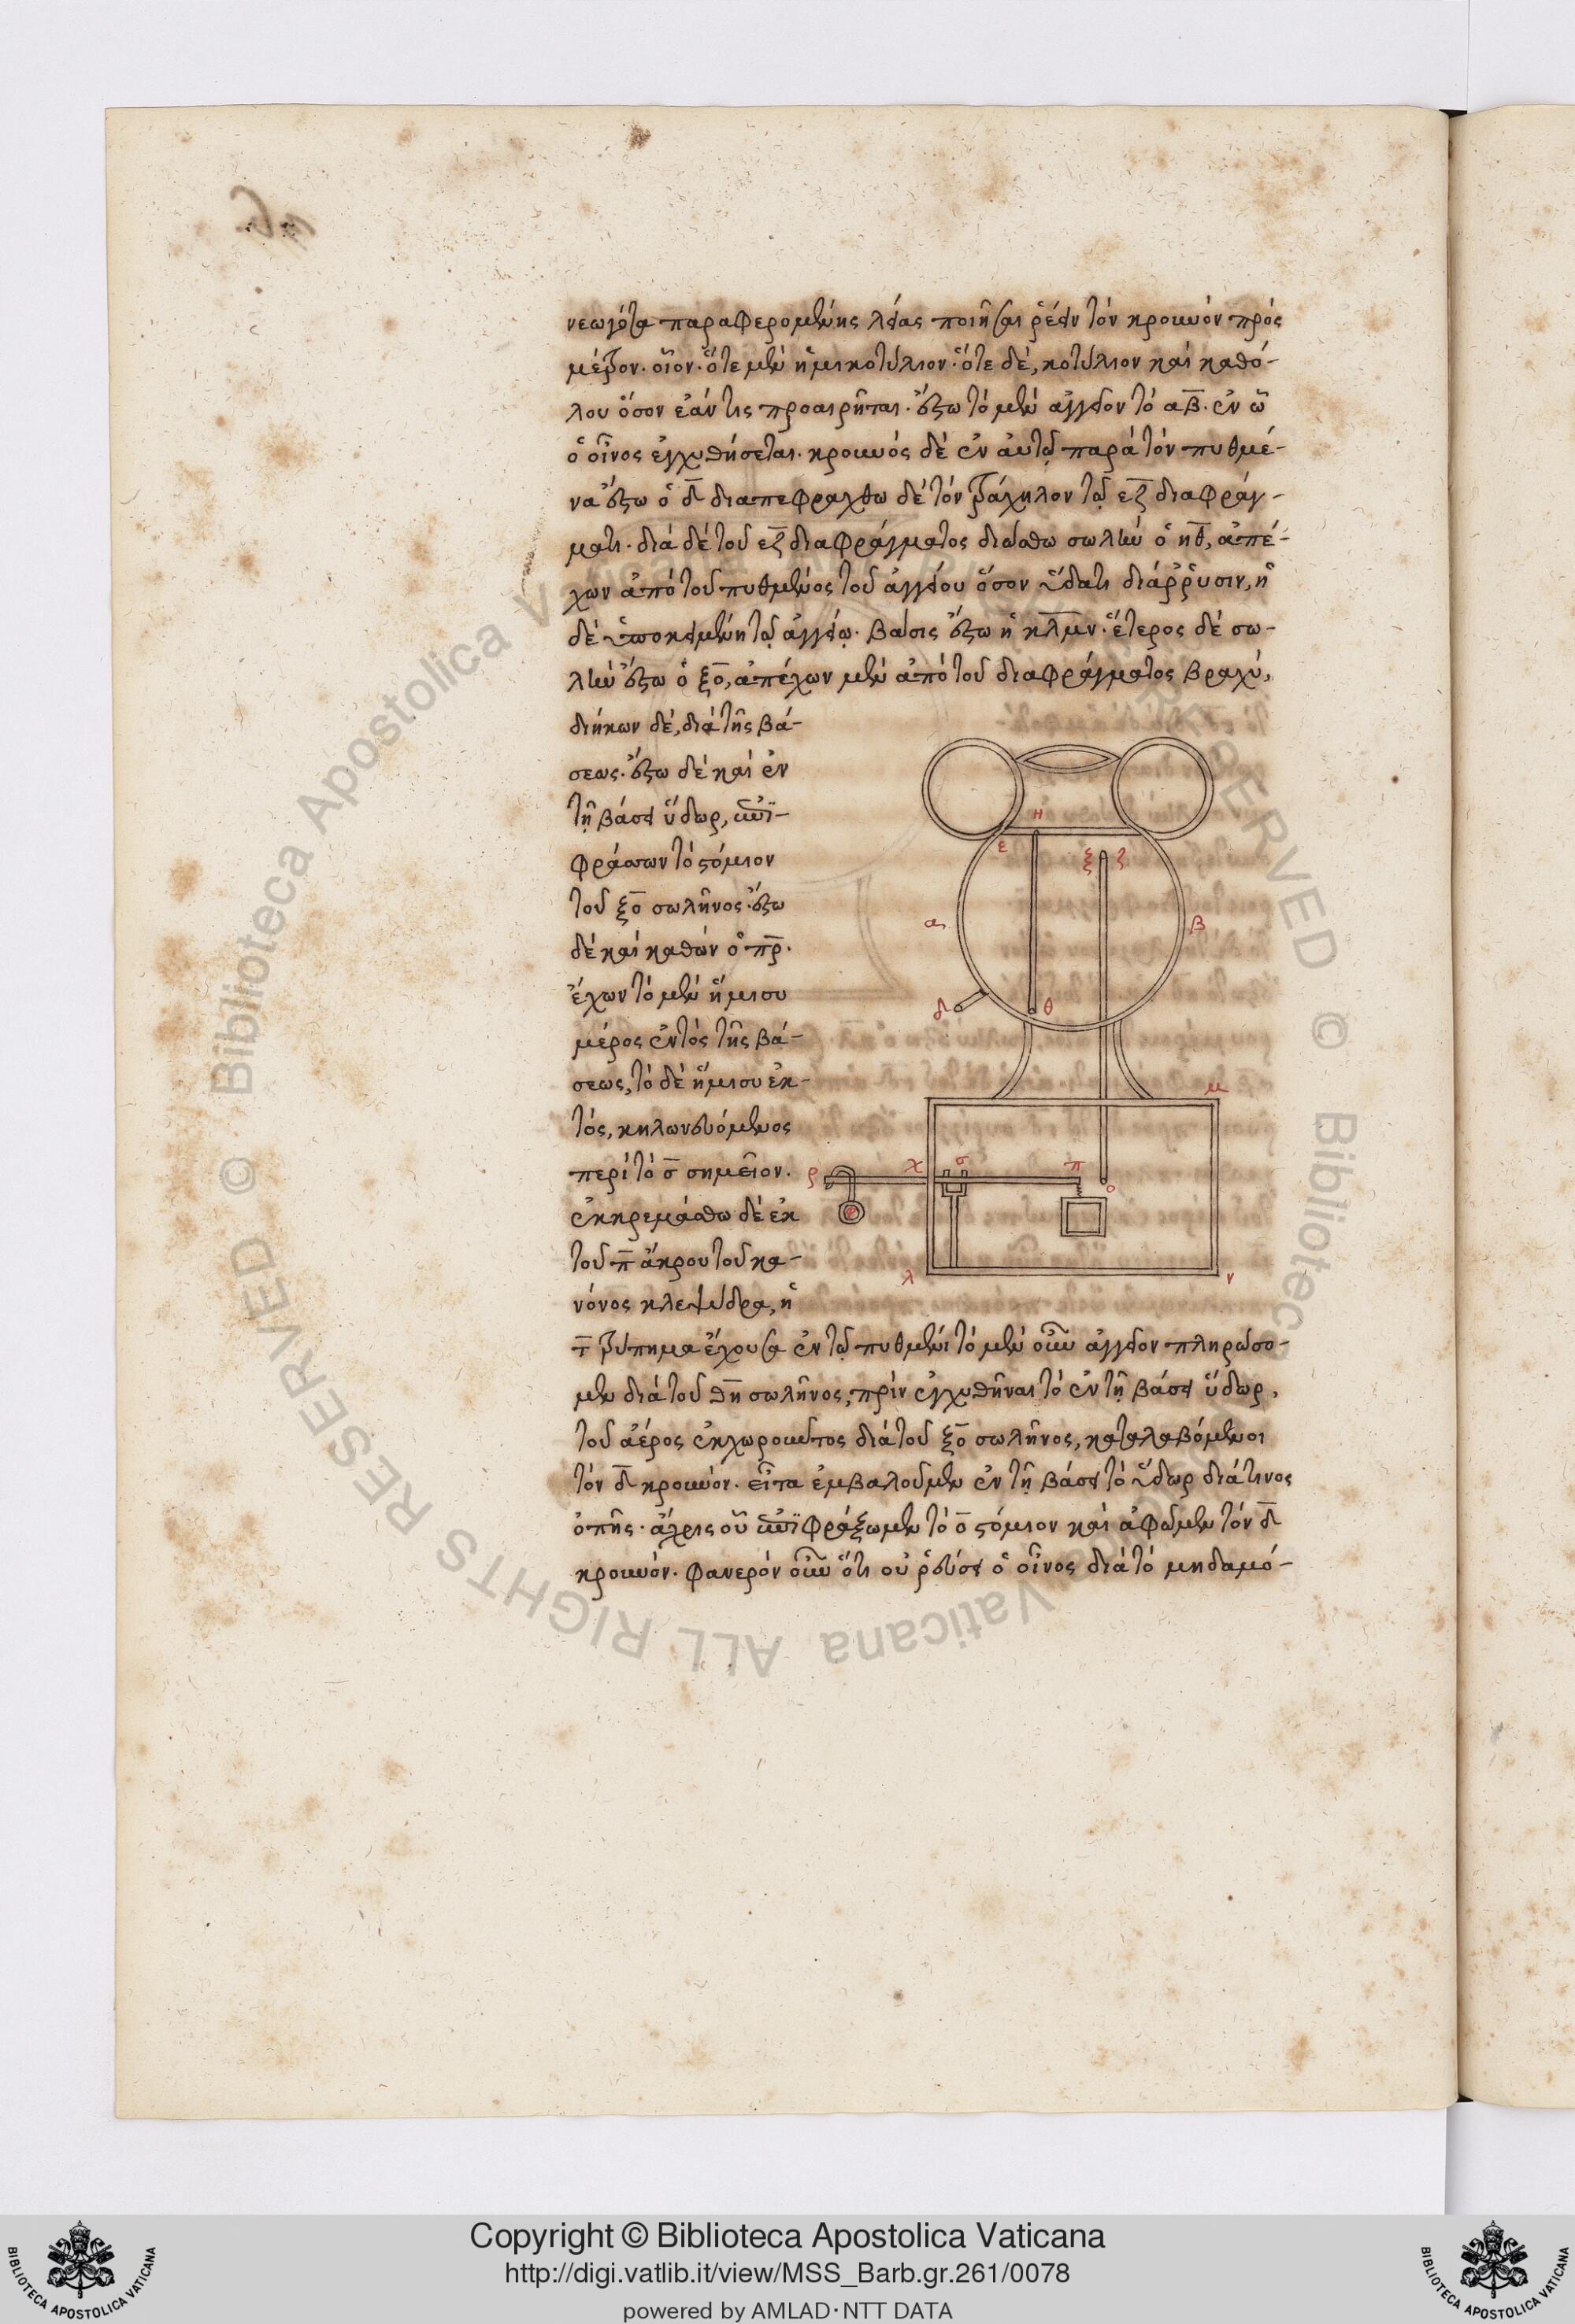 νεωγότα παραφερομένης λείας ποιῆσαι ῥέειν τὸν κρουνὸν πρὸς
μέτρον. οἷον. ὅτε μὲν ἡμικοτύλιον· ὅτε δὲ, κοτύλιον καὶ καθό-
λου ὅσον ἐάν τις προαιρῆται. ἔστω τὸ μὲν ἀγγεῖον τὸ αβ. ἐν ὧ
ὁ οἶνος ἐγχυθήσεται. κρουνὸς δὲ ἐν αὐτῷ παρὰ τὸν πυθμέ-
να ἔστω ὁ δ διαπεφράχθω δὲ τὸν τράχηλον τῷ εζ διαφράγ-
ματι. διὰ δὲ τοῦ εζ διαφράγματος διώσθω σωλὴν ὁ ηθ, ἀπέ-
χων ἀπὸ τοῦ πυθμένος τοῦ ἀγγείου ὅσον ὕδατι διάρρυσιν, ἡ
δὲ ὑποκειμένη τῷ ἀγγείῳ. βάσις ἔστω ἡ κλμν. ἕτερος δὲ σω-
λὴν ἔστω ὁ ξο, ἀπέχων μὲν ἀπὸ τοῦ διαφράγματος βραχύ,
διήκων δὲ, διὰ τῆς βά-
σεως. ἔστω δὲ καὶ ἐν
τῇ βάσει ὕδωρ, ἐπι-
φράσσων τὸ στόμιον
τοῦ ξο σωλῆνος. ἔστω
δὲ καὶ καθὼν ὁ πρ.
ἔχων τὸ μὲν ἥμισυ
μέρος ἐντὸς τῆς βά-
σεως, τὸ δὲ ἥμισυ ἐκ-
τὸς, κηλωνευόμενος
περὶ τὸ σ σημεῖον.
ἐκκρεμάσθω δὲ ἐκ
τοῦ π ἄκρου τοῦ κα-
νόνος κλεψύδρα, ἡ
τ τρύπημα ἔχουσα ἐν τῷ πυθμένι τὸ μὲν οὖν ἀγγεῖον πληρώσο-
μεν διὰ τοῦ θη σωλῆνος, πρὶν ἐγχυθῆναι τὸ ἐν τῇ βάσει ὕδωρ,
τοῦ ἀέρος ἐκχωροῦντος διὰ τοῦ ξο σωλῆνος, καταλαβόμενοι
τὸν δ κρουνόν. εἶτα ἐμβαλοῦμεν ἐν τῇ βάσει τὸ ὕδωρ διὰ τινος
ὀπῆς. ἄχρις οὗ ἐπιφράξωμεν τὸ ο στόμιον καὶ ἀφῶμεν τὸν δ
κρουνόν. φανερὸν οὖν ὅτι οὐ ῥεύσει ὁ οἶνος διὰ τὸ μηδαμό-
η
ε ξ ζ
α β
δ θ
μ
ρ χ σ π
ο
λ ν
Copyright © Biblioteca Apostolica Vaticana
http://digi.vatlib.it/view/MSS_Barb.gr.261/0078
powered by AMLAD·NTT DATA
BIBLIOTECA APOSTOLICA VATICANA
BIBLIOTECA APOSTOLICA VATICANA
© Biblioteca Apostolica Vaticana ALL RIGHTS RESERVED